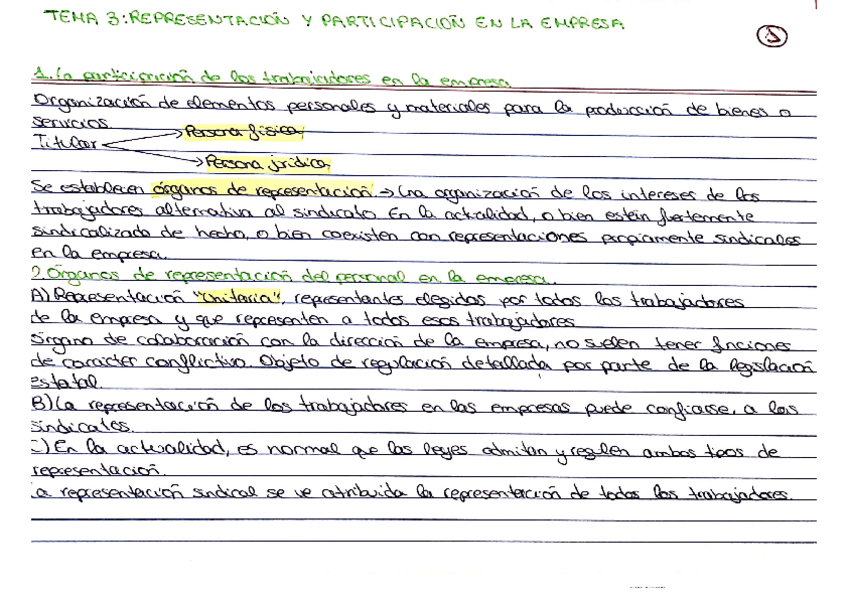 TEMA 3: REPRESENTACIÓN Y PARTICIPACIÓN EN LA EMPRESA
1. La participación de los trabajadores en la empresa
Organización de elementos personales y materiales para la producción de bienes o
servicios
Titular
Persona física
Persona jurídica
Se establecen órganos de representación → Una organización de los intereses de los
trabajadores alternativa al sindicato. En la actualidad, o bien están fuertemente
sindicalizado de hecho, o bien coexisten con representaciones propiamente sindicales
en la empresa.
2. Órganos de representación del personal en la empresa.
A) Representación "unitaria", representantes elegidos por todos los trabajadores
de la empresa y que representen a todos esos trabajadores
órgano de colaboración con la dirección de la empresa, no suelen tener funciones
de carácter conflictivo. Objeto de regulación detallada por parte de la legislación
estatal.
B) La representación de los trabajadores en las empresas puede confiarse, a los
sindicales.
C) En la actualidad, es normal que las leyes admitan y regulen ambos tipos de
representación.
La representación sindical se ve atribuida la representación de todos los trabajadores.